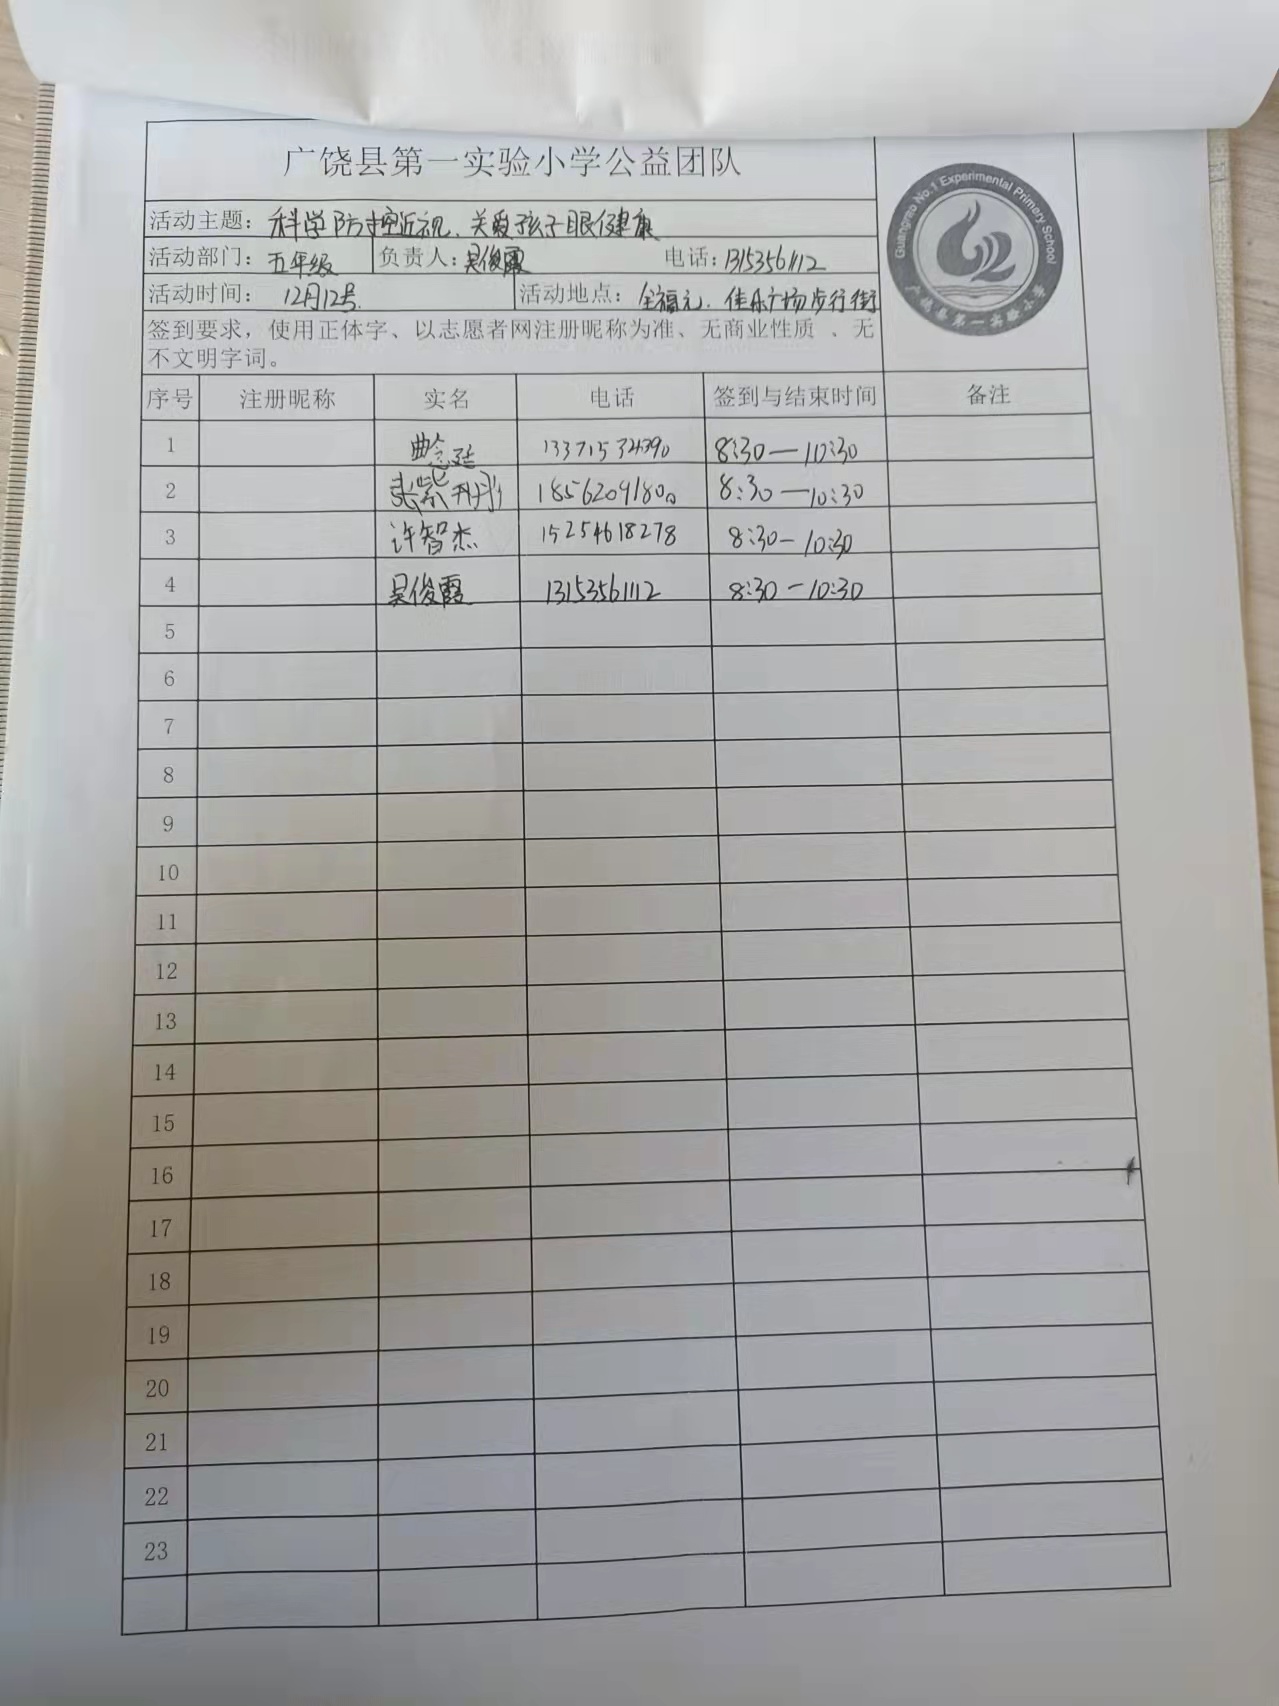 广饶县第一实验小学公益团队
Guangrao No.1 Experimental Primary School
广饶县第一实验小学
活动主题：科学防控近视、关爱孩子眼健康
活动部门：五年级 负责人：吴俊霞 电话：13153561112
活动时间：12月12号 活动地点：全福元、佳乐广场步行街
签到要求，使用正体字、以志愿者网注册昵称为准、无商业性质、无
不文明字词。
序号 注册昵称 实名 电话 签到与结束时间 备注
1 曲念廷 13371534390 8:30—10:30
2 18562091800 8:30—10:30
3 许智杰 15254618278 8:30—10:30
4 吴俊霞 13153561112 8:30—10:30
5
6
7
8
9
10
11
12
13
14
15
16
17
18
19
20
21
22
23